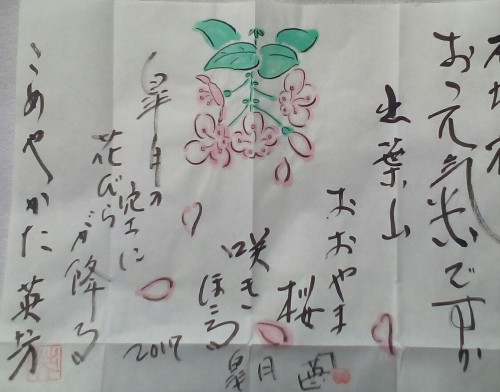 お元気ですか
出葉山
おおやま
桜
咲き
ほこる
皐月
2017
皐月の
空に
花びら
が降る
こめやかた 英芳